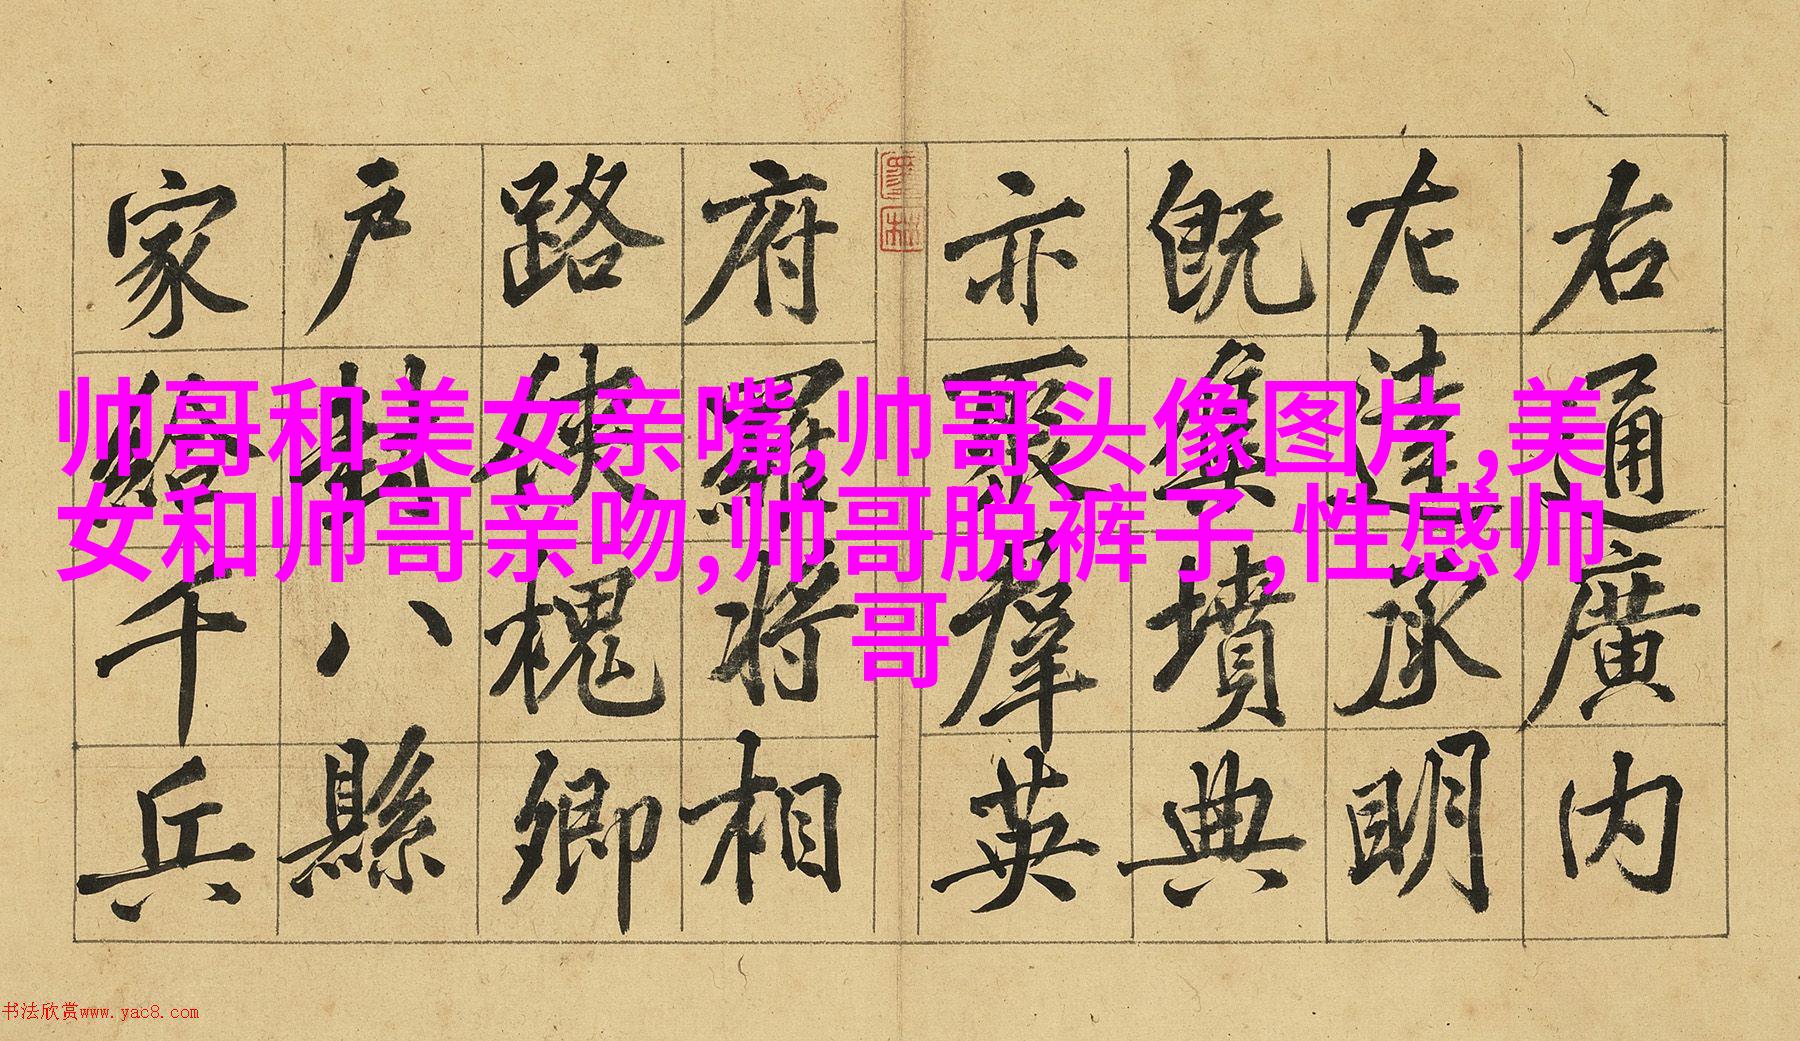 右通廣内
左達承明
既集墳典
亦聚羣英
府羅將相
路俠槐卿
戶封八縣
家給千兵
帅哥和美女亲嘴,帅哥头像图片,美
女和帅哥亲吻,帅哥脱裤子,性感帅
哥
书法欣赏www.yac8.com